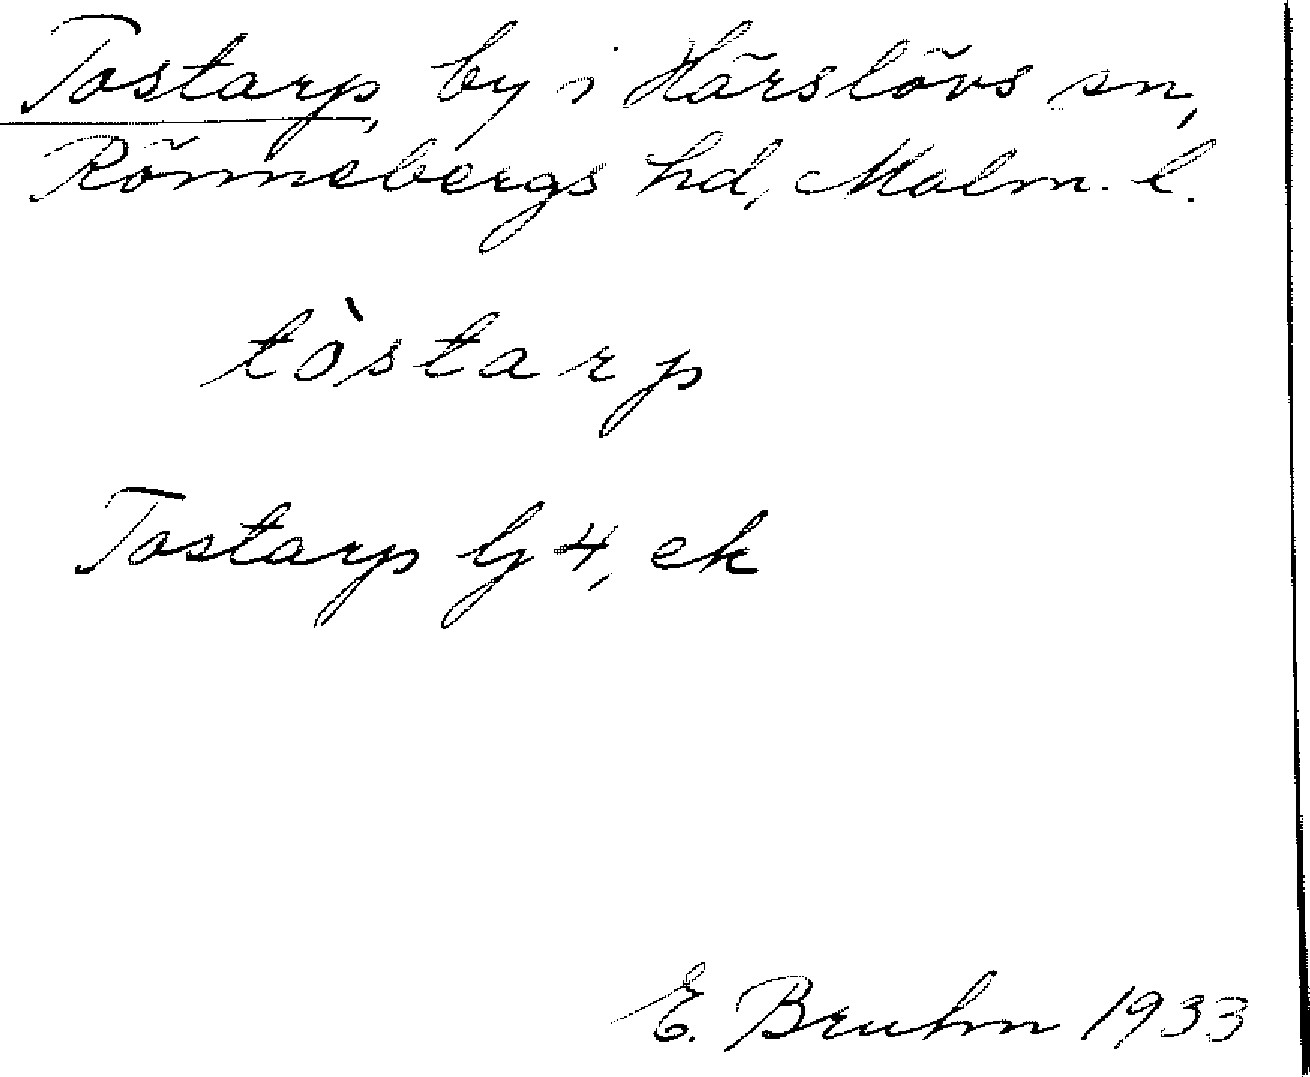 Tostarp, by i Härslövs sn,
Rönnebergs hd, Malm. l.
tòstarp
Tostarp G 4, ek
E. Bruhn 1933